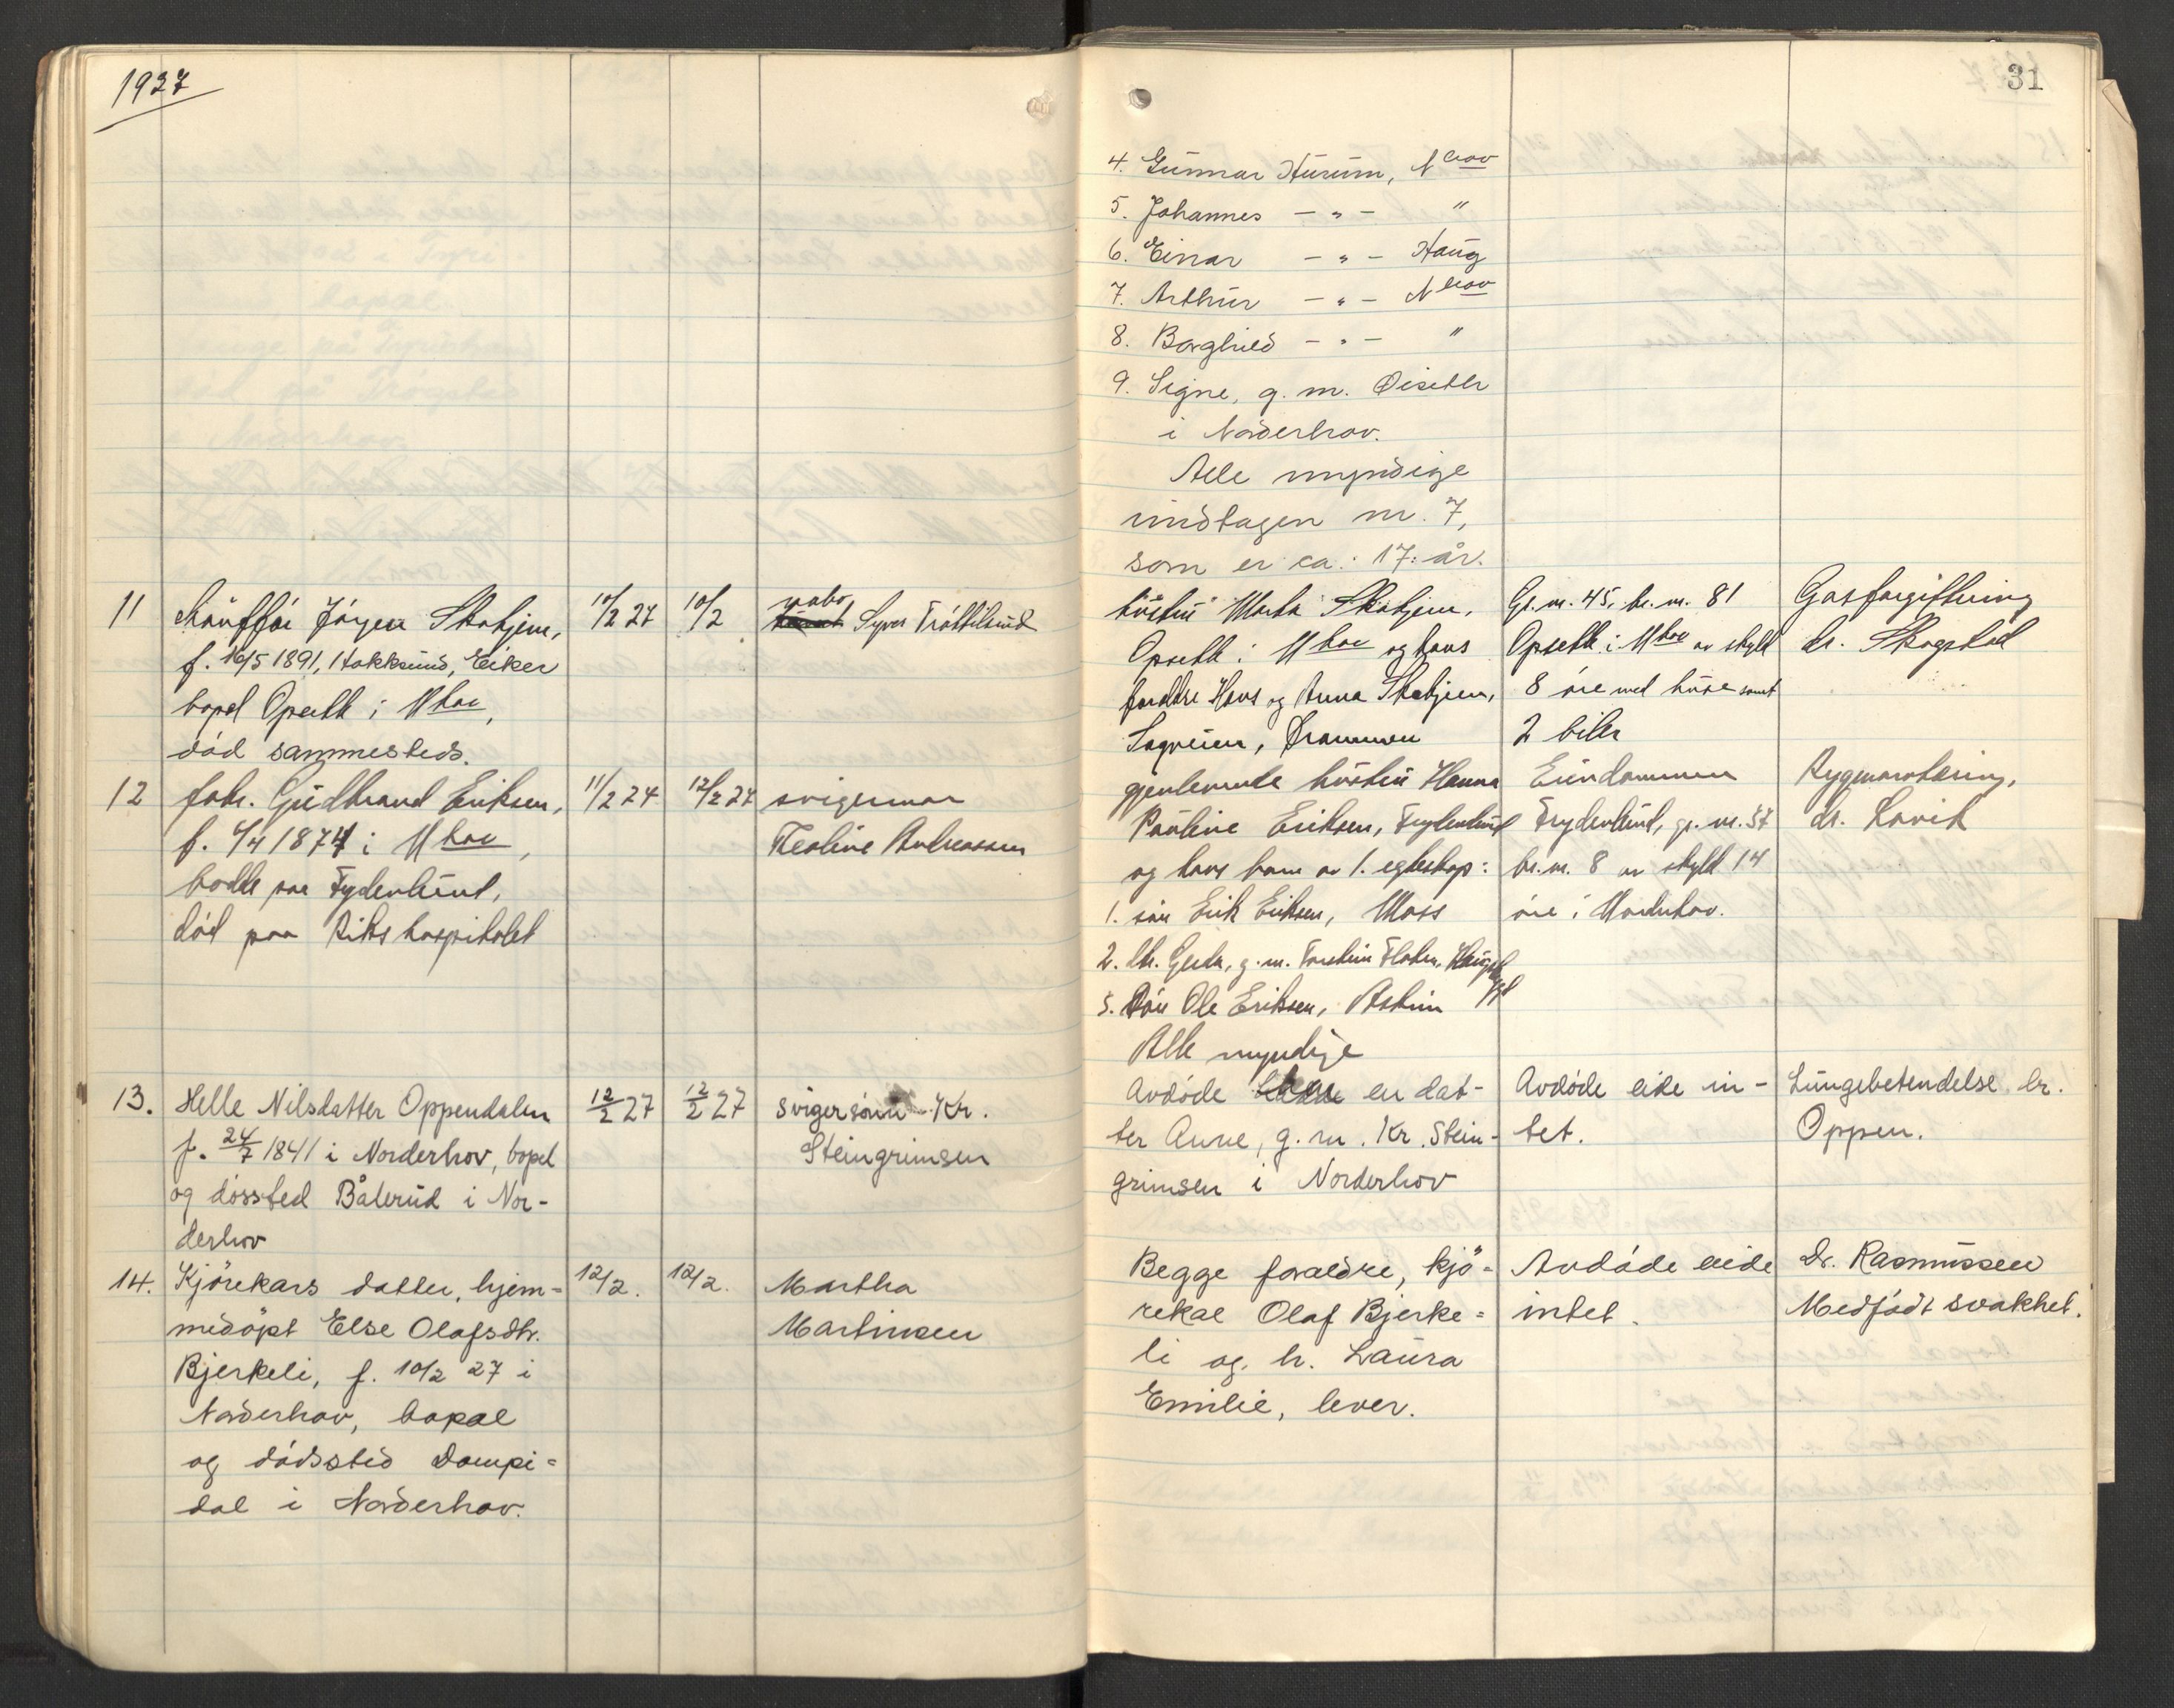 1927
11
Chauffør Jørgen Skotsjem,
f. 16/5 1891, Hokksund, Eiker
bopel Opseth i Nhov,
død sammesteds.
10/2 27
10/2
nabo
Syver Trøttelsrud
12
fabr. Gudbrand Eriksen,
f. 9/4 1874 i Nhov,
bodde paa Frydenlund,
død paa Rikshospitalet
11/2 27
12/2 27
svigermor
Teoline Andreassen
13.
Helle Nilsdatter Oppendalen
f. 24/7 1841 i Norderhov, bopel
og dødssted Bålerud i Nor-
derhov
12/2 27
12/2 27
svigersønn Kr.
Steingrimsen
14.
Kjørekars datter, hjem-
medøpt Else Olafsdtr.
Bjerkeli, f. 10/2 27 i
Norderhov, bopæl
og dødssted Dompi=
dal i Norderhov.
12/2.
12/2.
Martha
Martinsen
31
4. Gunnar Hurum, Nhov
5. Johannes - " - "
6. Einar - " - Haug
7. Arthur - " - Nhov
8. Borghild - " - "
9. Signe, g. m. Øiseth
i Norderhov.
Alle myndige
undtagen nr. 7,
som er ca. 17 år.
hustru Marta Skotsjem,
Opseth i Nhov og hans
foreldre Hans og Anna Skotsjem,
Sagveien, Drammen
Gr. nr. 45, br. nr. 81
Opseth i Nhov av skyld
8 øre med huse samt
2 biler
Gasforgiftning
dr. Skogstad
gjenlevende hustru Hanna
Pauline Eriksen, Frydenlund
og hans barn av 1. egteskap:
1. søn Erik Eriksen, Moss
2. dtr. Gerda, g. m. Torstein Flaten, Haugsb
3. søn Ole Eriksen, Askim
Alle myndige
Eiendommen
Frydenlund, gr. nr. 37
br. nr. 8 av skyld 14
øre i Norderhov.
Rygmarvtæring,
dr. Lavik
Avdøde en dat-
ter Anne, g. m. Kr. Stein-
grimsen i Norderhov
Avdøde eide in-
tet.
Lungebetendelse. Dr.
Oppen.
Begge forældre, kjø-
rekar Olaf Bjerke=
li og h. Laura
Emilie, lever.
Avdøde eide
intet.
Dr. Rasmussen
Medfødt svakhet.